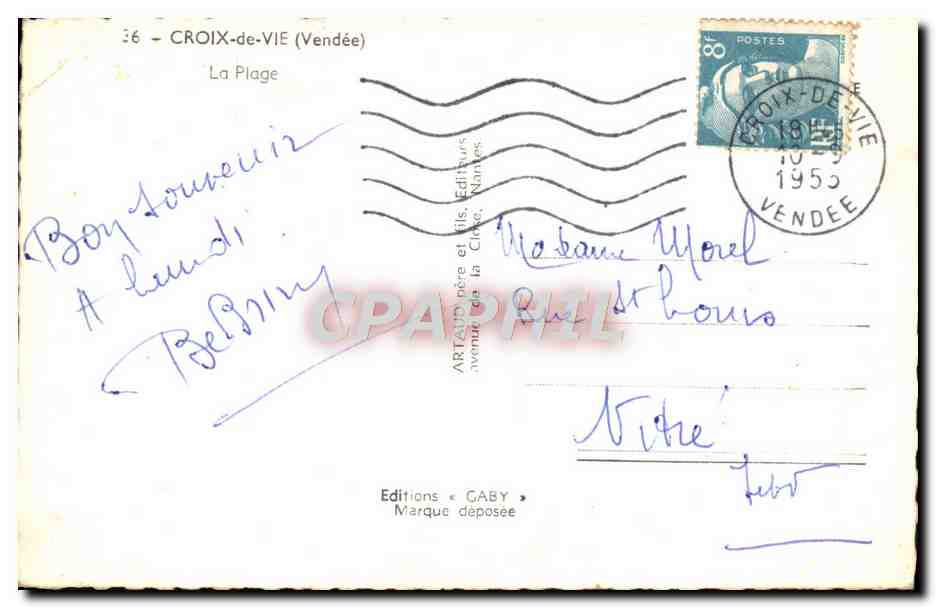 36 - CROIX-de-VIE (Vendée)
La Plage
8f
POSTES
CROIX-DE-VIE
18H
10-9
1955
VENDEE
Bon souvenir
A lundi
Madame Morel
Rue St Louis
Vitré
ARTAUD père et fils, Editeurs
avenue de la Close, Nantes
CPAPHIL
Editions « GABY »
Marque déposée